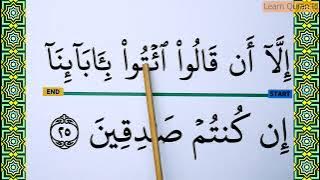 Learn Quran
إِلَّآ أَن قَالُوا۟ ٱئْتُوا۟ بِـَٔابَآئِنَآ
END START
إِن كُنتُمْ صَـٰدِقِينَ ٢٥